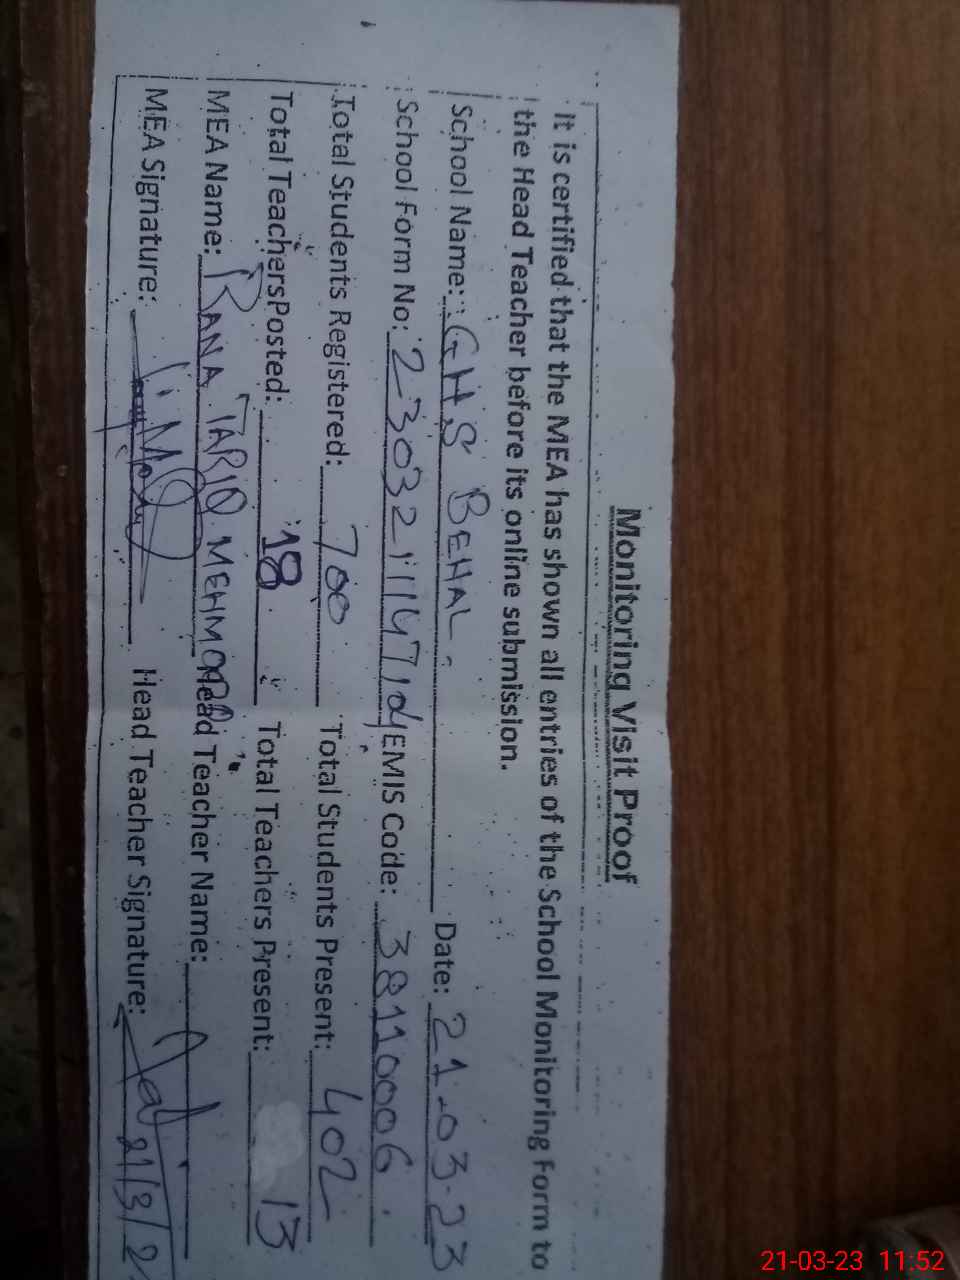 Monitoring Visit Proof
It is certified that the MEA has shown all entries of the School Monitoring Form to
the Head Teacher before its online submission.
School Name: GHS BEHAL. Date: 21-03-23
School Form No: EMIS Code: 38110006
Total Students Registered: 700 Total Students Present: 402
Total TeachersPosted: 18 Total Teachers Present: 13
MEA Name: RANA TARIQ MEHMOOD Head Teacher Name:
MEA Signature: Head Teacher Signature: 21/3/2
21-03-23 11:52